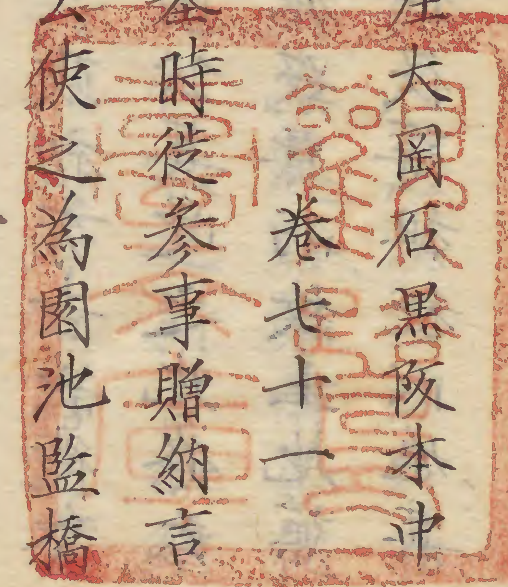 大岡石黒阪本中
卷七十一
時從参事贈納言
使之為園池監橋